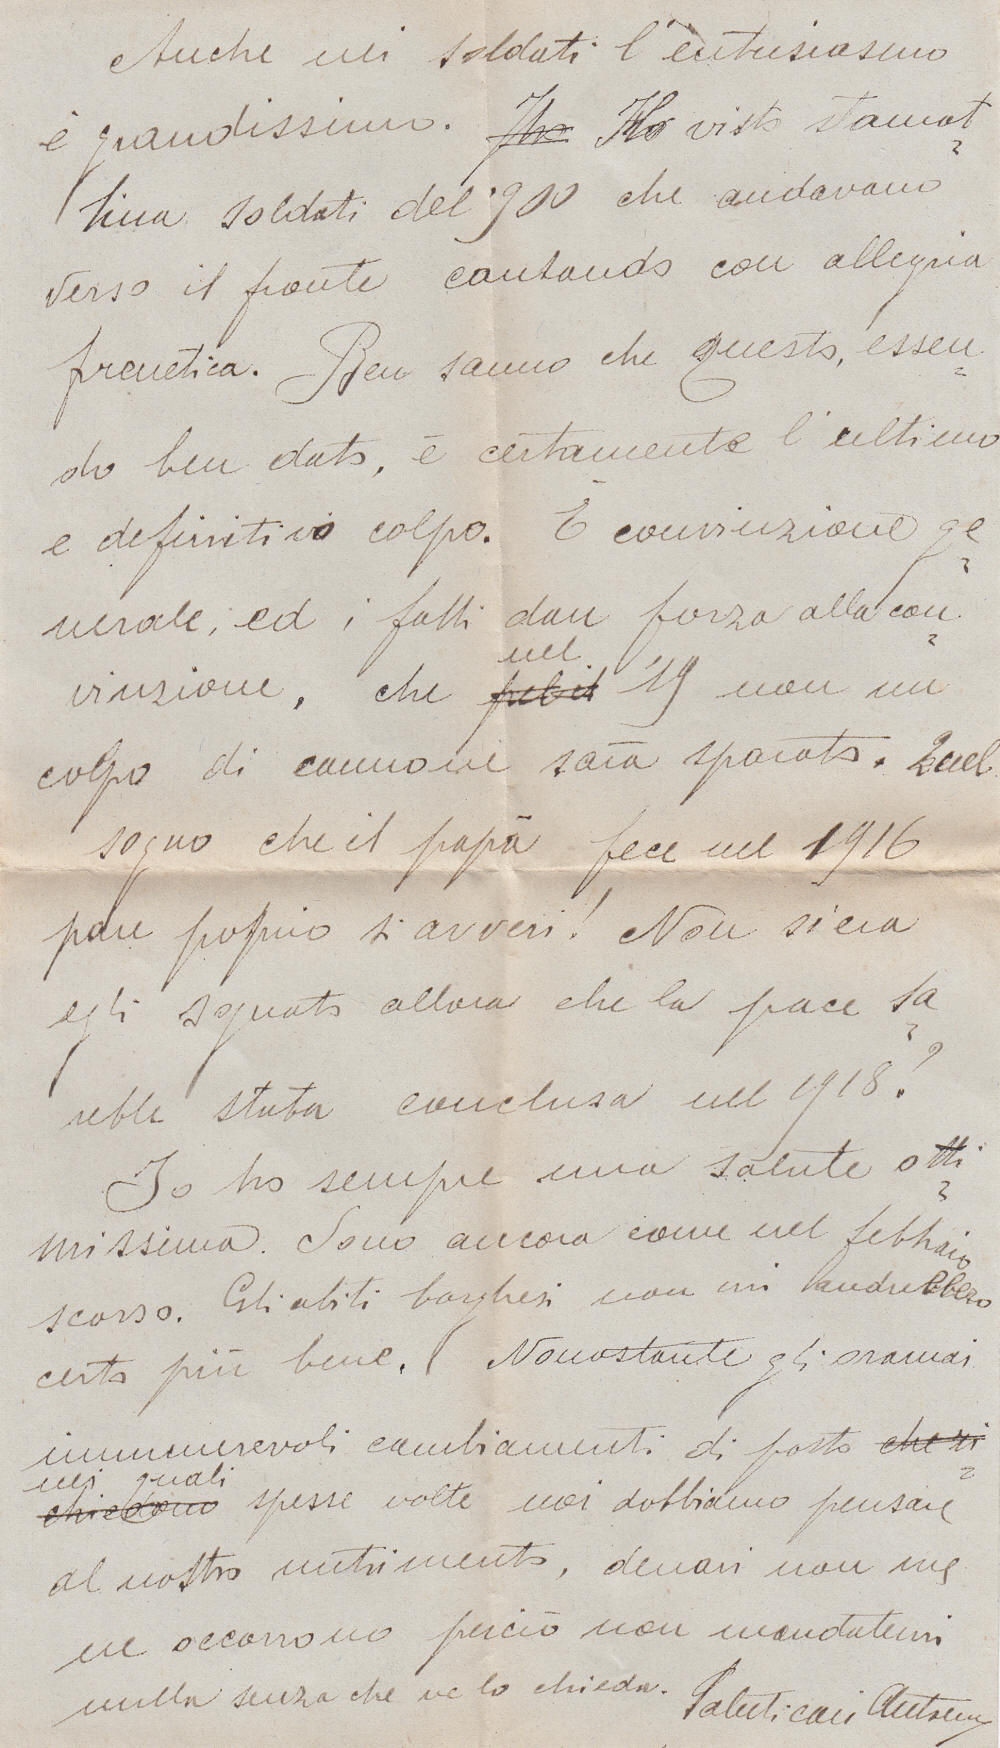 Anche nei soldati l'entusiasmo
è grandissimo. Ho visto stamat=
tina soldati del '900 che andavano
verso il fronte cantando con allegria
frenetica. Ben sanno che questo, essen=
do ben dato, è certamente l'ultimo
e definitivo colpo. È convinzione ge=
nerale, ed i fatti dan forza alla con=
vinzione, che nel '19 non un
colpo di cannone sarà sparato. Quel
sogno che il papà fece nel 1916
pare proprio si avveri! Non s'era
egli sognato allora che la pace sa=
rebbe stata conclusa nel 1918?
Io ho sempre una salute otti=
missima. Sono ancora come nel febbraio
scorso. Gli abiti borghesi non mi andrebbero
certo più bene. Nonostante gli oramai
innumerevoli cambiamenti di posto che ri=
nei quali
chiedono spesse volte noi dobbiamo pensare
al nostro nutrimento, denari non me
ne occorrono perciò non mandatemi
nulla senza che ve lo chieda. Saluti cari